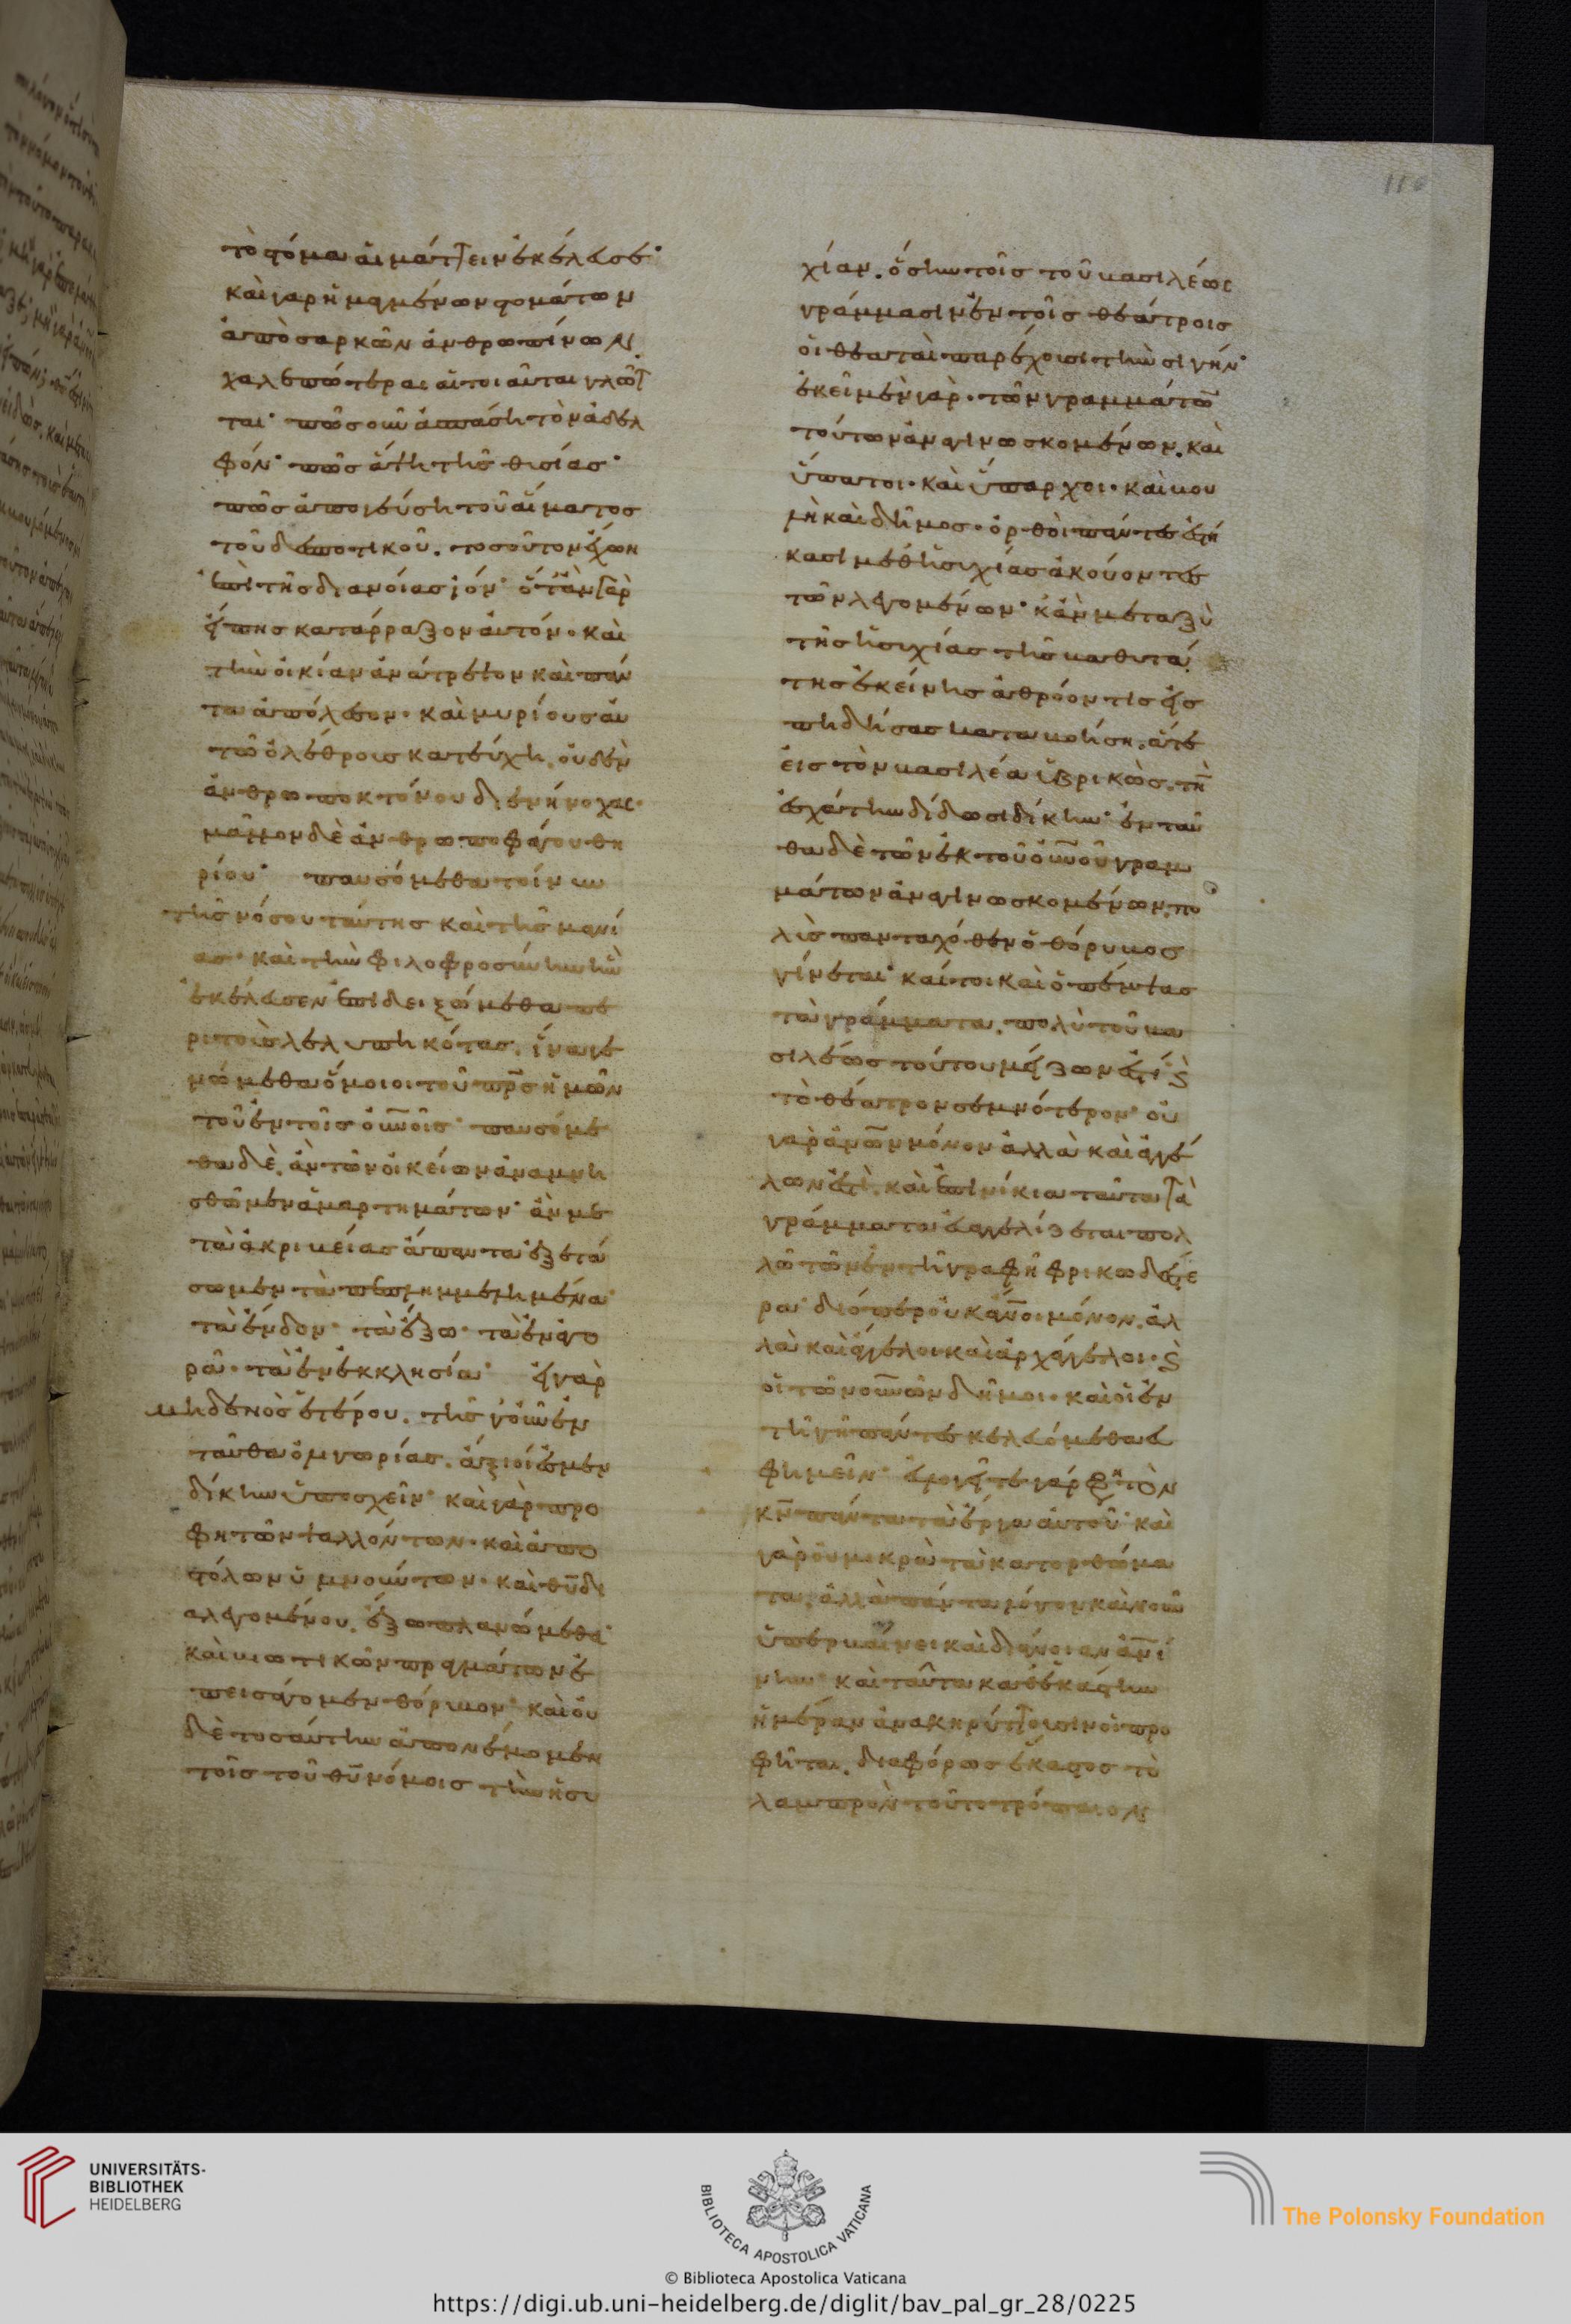 τὸ στόμα αἱμάττειν ἐκέλευσε·
καὶ γὰρ ἡμαγμένων στομάτων
ἀπὸ σαρκῶν ἀνθρωπίνων
χαλεπώτεραι αἱ τοιαῦται γλῶτ
ται· πῶς οὖν ἀσπάσῃ τὸν ἀδελ
φόν· πῶς ἅψῃ τῆς θυσίας·
πῶς ἀπογεύσῃ τοῦ αἵματος
τοῦ δεσποτικοῦ. τοσοῦτον ἔχων
ἐπὶ τῆς διανοίας ἰόν· ὅταν γὰρ
εἴπης κατάρραξον αὐτόν· καὶ
τὴν οἰκίαν ἀνάτρεψον καὶ πάν
τα ἀπόλεσον· καὶ μυρίους αὐ
τῶ ὀλέθρους κατεύχῃ. οὐδὲν
ἀνθρωποκτόνου διενήνοχας·
μᾶλλον δὲ ἀνθρωποφάγου θη
ρίου· παυσόμεθα τοίνυν
τῆς νόσου ταύτης καὶ τῆς μανί
ας· καὶ τὴν φιλοφροσύνην ἣν
ἐκέλευσεν ἐπιδειξώμεθα πε
ρὶ τοὺς λελυπηκότας. ἵνα γε
νώμεθα ὅμοιοι τοῦ πρ̅ς ἡμῶν
τοῦ ἐν τοῖς οὐνοῖς· παυσόμε
θα δὲ, ἂν τῶν οἰκείων ἀναμνη
σθῶμεν ἁμαρτημάτων· ἂν με
τὰ ἀκριβείας ἅπαντα ἐξετά
σωμεν τὰ πεπλημμελημένα·
τὰ ἔνδον· τὰ ἔξω· τὰ ἐν ἀγο
ρᾶ· τὰ ἐν ἐκκλησία· εἰ γὰρ
μηδενὸς ἑτέρου. τῆς γοῦν ἐν
ταῦθα ὀλιγωρίας. ἄξιοί ἐσμεν
δίκην ὑποσχεῖν· καὶ γὰρ προ
φητῶν ψαλλόντων· καὶ ἀπο
στόλων ὑμνούντων· καὶ θυ̅ δι
αλεγομένου. ἔξω πλανώμεθα·
καὶ βιωτικῶν πραγμάτων ἐ
πεισάγομεν θόρυβον· καὶ οὐ
δὲ τοσαύτην ἀπονέμομεν
τοῖς τοῦ θυ̅ νόμοις τὴν ἡσυ
χίαν. ὅσην τοῖς τοῦ βασιλέως
γράμμασιν ἐν τοῖς θεάτροις
οἱ θεαταὶ παρέχουσι τὴν σιγήν·
ἐκεῖ μὲν γὰρ. τῶν γραμμάτων
τούτων ἀναγινωσκομένων. καὶ
ὕπατοι· καὶ ὕπαρχοι· καὶ βου
λὴ καὶ δῆμος· ὀρθοὶ πάντες ἑστή
κασι μεθ' ἡσυχίας ἀκούοντες
τῶν λεγομένων· κἂν μεταξὺ
τῆς ἡσυχίας τῆς βαθυτά
της ἐκείνης ἀθρόον τις εἰσ
πηδήσας καταβοήση. ἅτε
εἰς τὸν βασιλέα ὑβρικὼς. τὴν
ἐσχάτην δίδωσι δίκην· ἐνταῦ
θα δὲ τῶν ἐκ τοῦ οὐνοῦ γραμ
μάτων ἀναγινωσκομένων. πο
λὺς πανταχόθεν ὁ θόρυβος
γίνεται· καίτοι καὶ ὁ πέμψας
τὰ γράμματα. πολὺ τοῦ βα
σιλέως τούτου μείζων ἐστί· καὶ
τὸ θέατρον σεμνότερον· οὐ
γὰρ ἀνων μόνον ἀλλὰ καὶ ἀγγέ
λων ἐστὶ. καὶ ἐπινίκια ταῦτα τὰ
γράμματα εὐαγγελίζεται πολ
λῶ τῶν ἐν τῆ γραφῆ φρικωδέστε
ρα· διόπερ οὐκ ἄνοι μόνον. ἀλ
λὰ καὶ ἄγγελοι καὶ ἀρχάγγελοι· καὶ
οἱ τῶν οὐνῶν δῆμοι· καὶ οἱ ἐν
τῆ γῆ πάντες κελευόμεθα εὐ
φημεῖν· εὐλογεῖτε γάρ φη τὸν
κν̅ πάντα τὰ ἔργα αὐτοῦ· καὶ
γὰρ οὐ μικρὰ τὰ κατορθώμα
τα. ἀλλὰ πάντα λόγον καὶ νοῦν
ὑπερβαίνει καὶ διάνοιαν ἀνί
νην· καὶ ταῦτα καθ' ἑκάστην
ἡμέραν ἀνακηρύττουσιν οἱ προ
φῆται. διαφόρως ἕκαστος τὸ
λαμπρὸν τοῦτο τρόπαιον
UNIVERSITÄTS-
BIBLIOTHEK
HEIDELBERG
BIBLIOTECA APOSTOLICA VATICANA
The Polonsky Foundation
© Biblioteca Apostolica Vaticana
https://digi.ub.uni-heidelberg.de/diglit/bav_pal_gr_28/0225